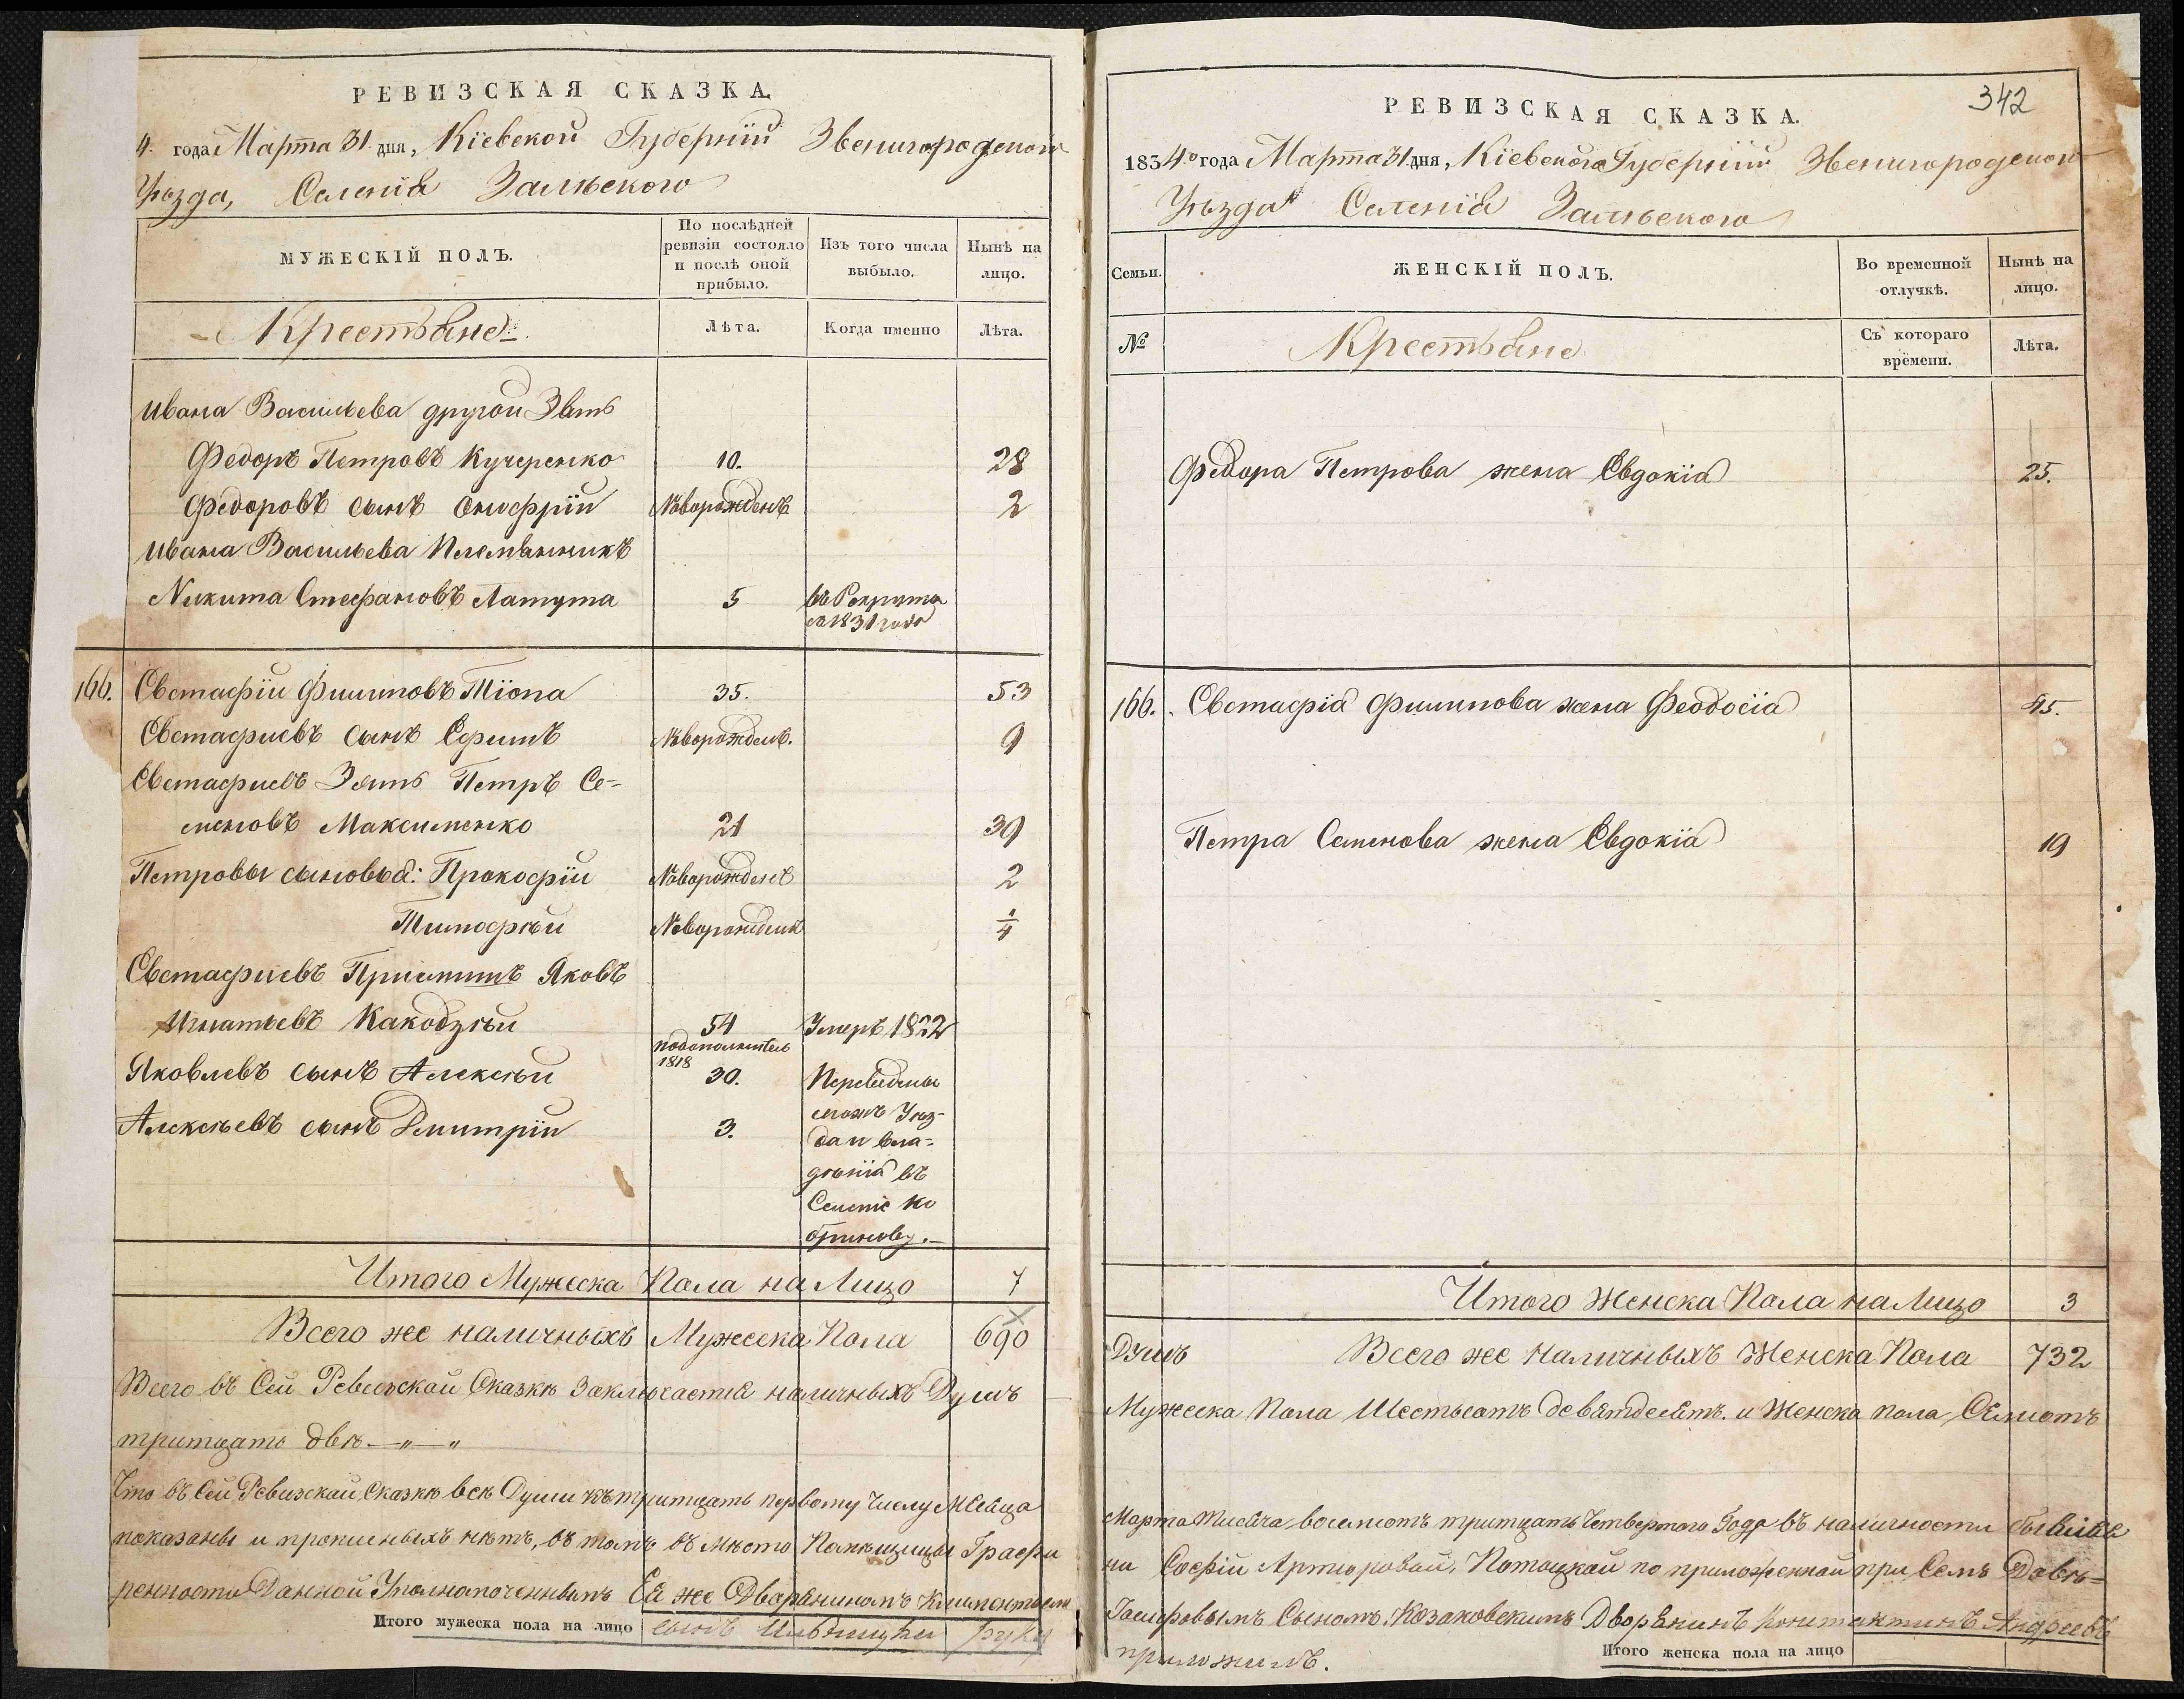 РЕВИЗСКАЯ СКАЗКА
4. года Марта 31. дня, Кіевской Губерніи Звенигородской
Уѣзда, Селенія Залѣского
МУЖЕСКІЙ ПОЛЪ.
По послѣдней ревизіи состояло и послѣ оной прибыло.
Изъ того числа выбыло.
Нынѣ на лицо.
Крестьяне
Лѣта.
Когда именно
Лѣта.
Ивана Васильева другой Зять
Федоръ Петровъ Кучеренко 10. 28
Федоровъ сынъ Онофрій Новорожденъ 2
Ивана Васильева Племянникъ
Никита Стефановъ Латута 5 въ Рекрута
въ 1831 года
166. Евстафій Филиповъ Тіопа 35. 53
Евстафиевъ сынъ Ефимъ Новорожденъ. 9
Евстафиевъ Зять Петръ Се-
меновъ Максименко 21 39
Петровы сыновья: Прокофій Новорожденъ 2
Тимофѣй Новорожденъ 1/4
Евстафиевъ Приемышъ Яковъ
Игнатьевъ Какодзѣй 54 Умеръ 1822
1818
Яковлевъ сынъ Алексѣй 30. Переведены
Алексѣевъ сынъ Дмитрій 3. тогожъ Уѣз-
да и вла-
дѣнія въ
Селеніе Ко
бринову.
Итого Мужеска Пола на Лицо 7
Всего же наличныхъ Мужеска Пола 690
Всего въ Сей Ревизской Сказкѣ Заключается наличныхъ Душъ
тритцать двѣ
Что въ Сей Ревизской Сказкѣ всѣ Души къ тритцать первому Числу Мѣсяца
показаны и прописныхъ нѣтъ, въ томъ въ мѣсто Помѣщицы Графи
ренности Данной Уполномоченнымъ Ея же Дворяниномъ Климентьем
Итого мужеска пола на лицо сынъ руку
342
РЕВИЗСКАЯ СКАЗКА.
1834го года Марта 31 дня, Кіевской Губерніи Звенигородской
Уѣзда Селенія Залѣского
Семьи.
ЖЕНСКІЙ ПОЛЪ.
Во временной отлучкѣ.
Нынѣ на лицо.
№
Крестьяне
Съ котораго времени.
Лѣта.
Федора Петрова жена Евдокія 25.
166. Евстафія Филипова жена Феодосія 45.
Петра Семенова жена Евдокія 19
Итого Женска Пола на Лицо 3
Душъ Всего же Наличныхъ Женска Пола 732
Мужеска Пола Шестьсотъ девятдесятъ. и Женска пола, Семсотъ
Марта Тисяча, восемсотъ тритцать Четвертого Года въ наличности бывшие
ни Софіи Артюровой, Потоцкой по приложенной при Семъ Довѣ=
Іосифовымъ Сыномъ, Козаковскимъ Дворянинъ Константинъ Андреевъ
приложилъ.
Итого женска пола на лицо